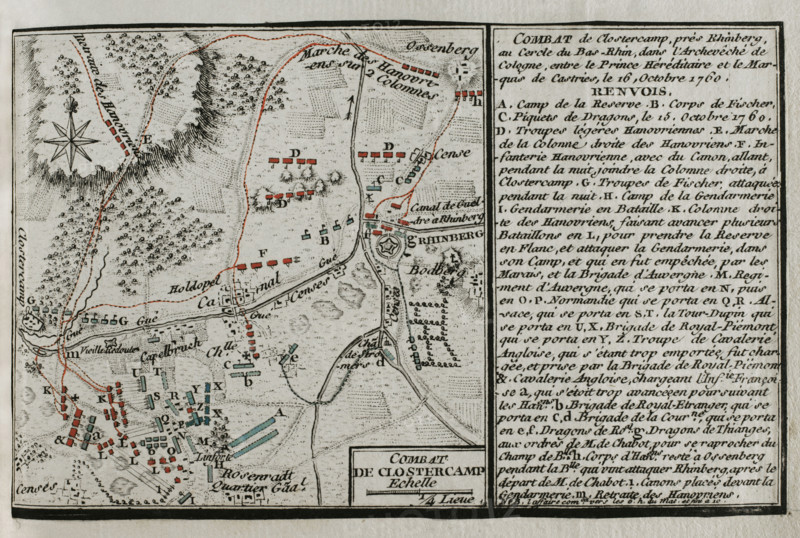 Ossenberg
Marche des Hanovri-
ens sur 2
Colomnes
Retraite des Hanovriens
E
h
D
D
B
Cense
D
C
C
Canal de Guel-
dre à Rhinberg
RHINBERG
g
B
B
F
Gué
Bodberg
Holdopel
Canal
Censes
Clostercamp
G
G
Gué
Gué
m
Vieille Redoute
Capelbruch
Chlle
Chau de Stro-
mers
d
C
b
e
U
T
S
R
Y
X
X
Q
P
O
M
A
K
K
L
L
L
&
a
Linforte
H
Censes
Rosenradt
Quartier Gãal
COMBAT
DE CLOSTERCAMP
Echelle
1/4 Lieue
COMBAT de Clostercamp, prés Rhinberg,
au Cercle du Bas-Rhin, dans l'Archevêché de
Cologne, entre le Prince Héréditaire et le Mar-
quis de Castries, le 16, Octobre 1760.
RENVOIS.
A. Camp de la Reserve. B. Corps de Fischer,
C. Piquets de Dragons, le 15. Octobre 1760.
D. Troupes légeres Hanovriennes. E. Marche
de la Colonne droite des Hanovriens. F. In-
fanterie Hanovrienne, avec du Canon, allant,
pendant la nuit, joindre la Colonne droite, à
Clostercamp. G. Troupes de Fischer, attaquée
pendant la nuit. H. Camp de la Gendarmerie
I. Gendarmerie en Bataille. K. Colonne droi-
te des Hanovriens, faisant avancer plusieurs
Bataillons en L, pour prendre la Reserve
en Flanc, et attaquer la Gendarmerie, dans
son Camp, et qui en fut empêchée, par les
Marais, et la Brigade d'Auvergne. M. Regi-
ment d'Auvergne, qui se porta en N, puis
en O. P. Normandie qui se porta en Q, R. Al-
sace, qui se porta en S, T. la Tour-Dupin qui
se porta en U, X. Brigade de Royal-Piémont,
qui se porta en Y, Z. Troupe de Cavalerie
Angloise, qui s'étant trop emportée, fut char-
gée, et prise par la Brigade de Royal-Piémont
&. Cavalerie Angloise, chargeant l'Inf.rie Françoi-
se a, qui s'étoit trop avancée en poursuivant
les Han.ns b. Brigade de Royal-Etranger, qui se
porta en C, d. Brigade de la Cour.ne qui se porta
en e, f. Dragons de R.al g. Dragons de Thianges,
aux ordres de M. de Chabot, pour se raprocher du
Champ de B.lle h. Corps d'Han.ns resté a Ossenberg
pendant la B.lle qui vint attaquer Rhinberg, après le
départ de M. de Chabot. 1. Canons placés devant la
Gendarmerie. m. Retraite des Hanovriens.